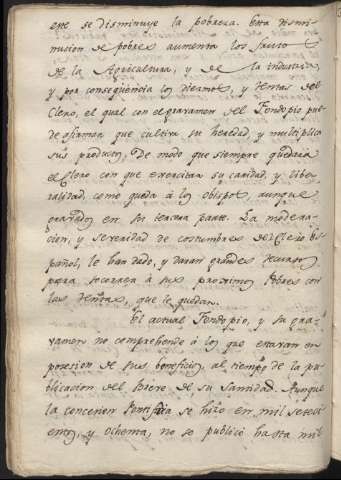 ese se disminuye la pobreza. Esta dismi-
nucion de pobres aumenta los frutos
de la Agricultura, y de la industria,
y por conseqüencia los diezmos, y rentas del
Clero, el qual con el gravamen del Fondopio pue-
de afirmar que cultiva su heredad, y multiplica
sus productos, de modo que siempre quedaria
el Clero con que exercitar su caridad, y libe-
ralidad, como queda à los obispos, aunque
gravados en su tercera parte. La modera-
cion, y severidad de costumbres del Clero Es-
pañol, le han dado, y daran grandes recursos
para socorrer à sus proximos Pobres con
las rentas, que le quedan.
El actual Fondopio, y su gra-
vamen no comprehende à los que estavan en
posesion de sus beneficios, al tiempo de la pu-
blicacion del Breve de su Santidad. Aunque
la concesion Pontificia se hizo en mil setecí
entos, y ochenta, no se publicò hasta mil